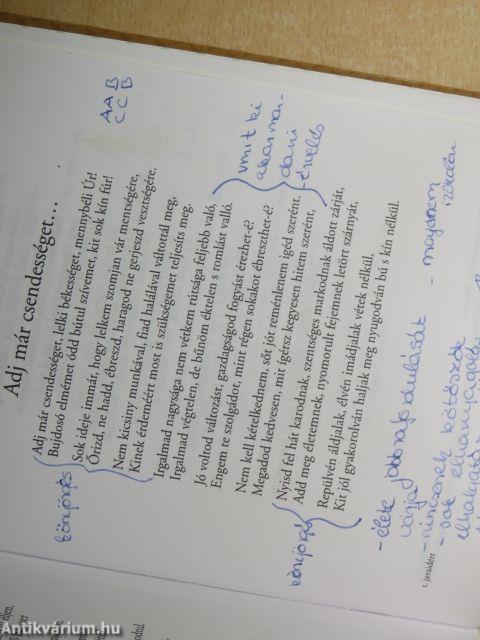 Adj már csendességet…
AAB
CCB
Adj már csendességet, lelki békességet, mennybéli Úr!
Bujdosó elmémet ódd bútul szívemet, kit sok kín fúr!
Sok ideje immár, hogy lelkem szomjan vár mentségére,
Őrizd, ne hadd, ébreszd, haragod ne gerjeszd vesztségére.
Nem kicsiny munkával, fiad halálával váltottál meg,
Kinek érdeméért most is szükségemet teljesíts meg.
Irgalmad nagysága nem vétkem rútsága feljebb való,
Irgalmad végtelen, de bűnöm éktelen s romlást valló.
Jó voltod változást, gazdagságod fogyást érezhet-é?
Engem te szolgádot, mint régen sokakot ébreszthet-é?
Nem kell kételkednem, sőt jót reménlenem igéd szerént,
Megadod kedvesen, mit ígérsz kegyesen hitem szerént,
Nyisd fel hát karodnak, szentséges markodnak áldott zárját,
Add meg életemnek, nyomorult fejemnek letört szárnyát,
Repülvén áldjalak, élvén imádjalak vétek nélkül,
Kit jól gyakorolván haljak meg nyugodván bú s kín nélkül.
könyörgés
vmit ki
akar
dani
- érvelés
könyörgés
- élete jobbrafordulását
várja
- nincsenek kötőszók
- sok
1. javaidért
Antikvárium.hu
Antikvárium.hu